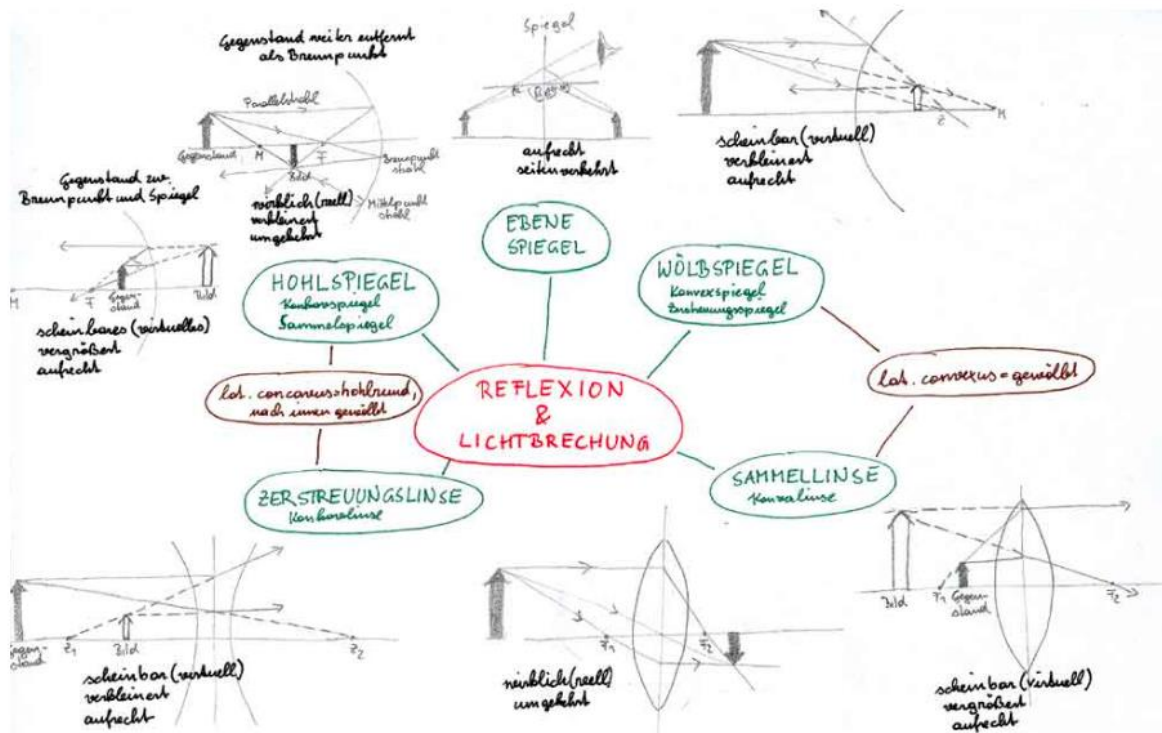 Gegenstand weiter entfernt
als Brennpunkt
Parallelstrahl
Gegenstand
M
F
Bild
Brennpunkt
strahl
Mittelpunkt
strahl
wirklich (reell)
verkleinert
umgekehrt
Spiegel
aufrecht
seitenverkehrt
Z
M
scheinbar (virtuell)
verkleinert
aufrecht
Gegenstand zw.
Brennpunkt und Spiegel
M
F
Gegen-
stand
Bild
scheinbares (virtuelles)
vergrößert
aufrecht
HOHLSPIEGEL
Konkavspiegel
Sammelspiegel
EBENE
SPIEGEL
WÖLBSPIEGEL
Konvexspiegel
Zerstreuungsspiegel
lat. concavus=hohlrund,
nach innen gewölbt
REFLEXION
&
LICHTBRECHUNG
lat. convexus=gewölbt
ZERSTREUUNGSLINSE
Konkavlinse
SAMMELLINSE
Konvexlinse
Gegen-
stand
Z1
Bild
Z2
scheinbar (virtuell)
verkleinert
aufrecht
F1
F2
wirklich (reell)
umgekehrt
Bild
F1
Gegen-
stand
F2
scheinbar (virtuell)
vergrößert
aufrecht